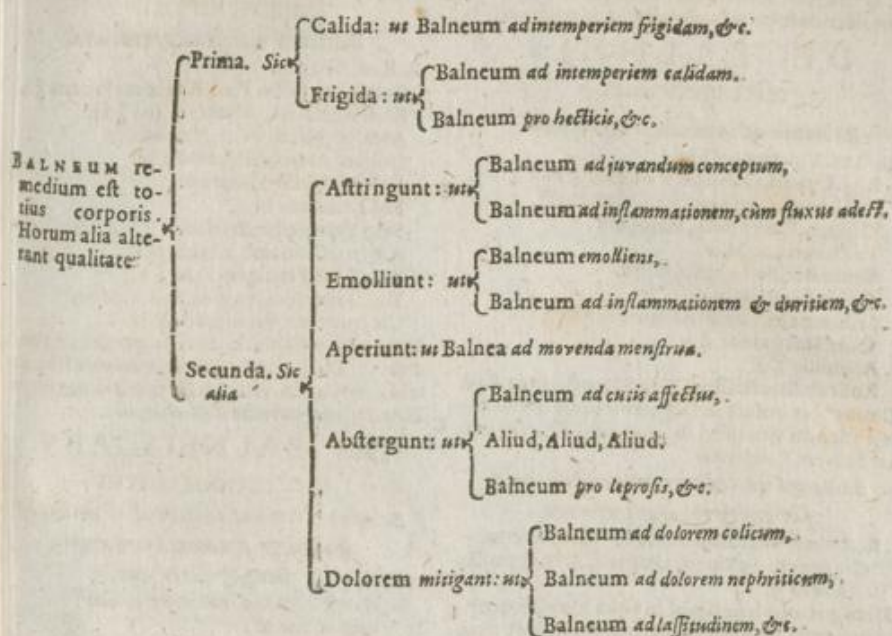 BALNEUM re-
medium est to-
tius corporis.
Horum alia alte-
rant qualitate
Prima. Sic
Calida: ut Balneum ad intemperiem frigidam, &c.
Frigida: ut
Balneum ad intemperiem calidam.
Balneum pro hecticis, &c.
Secunda. Sic
alia
Astringunt: ut
Balneum ad juvandum conceptum,
Balneum ad inflammationem, cùm fluxus adest.
Emolliunt: ut
Balneum emolliens,
Balneum ad inflammationem & duritiem, &c.
Aperiunt: ut Balnea ad movenda menstrua.
Abstergunt: ut
Balneum ad cutis affectus,
Aliud, Aliud, Aliud.
Balneum pro leprosis, &c.
Dolorem mitigant: ut
Balneum ad dolorem colicum,
Balneum ad dolorem nephriticum,
Balneum ad lassitudinem, &c.